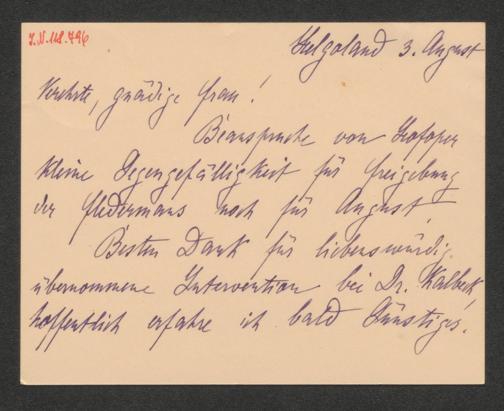 J.N. 118.796
Helgoland 3. August
Verehrte, gnädige Frau!
Beanspruche von Hofoper
kleine Gegengefälligkeit für Freigebung
der Fledermaus noch für August,
Besten Dank für liebenswürdig
übernommene Intervention bei Dr. Kalbeck,
hoffentlich erfahre ich bald Günstiges.